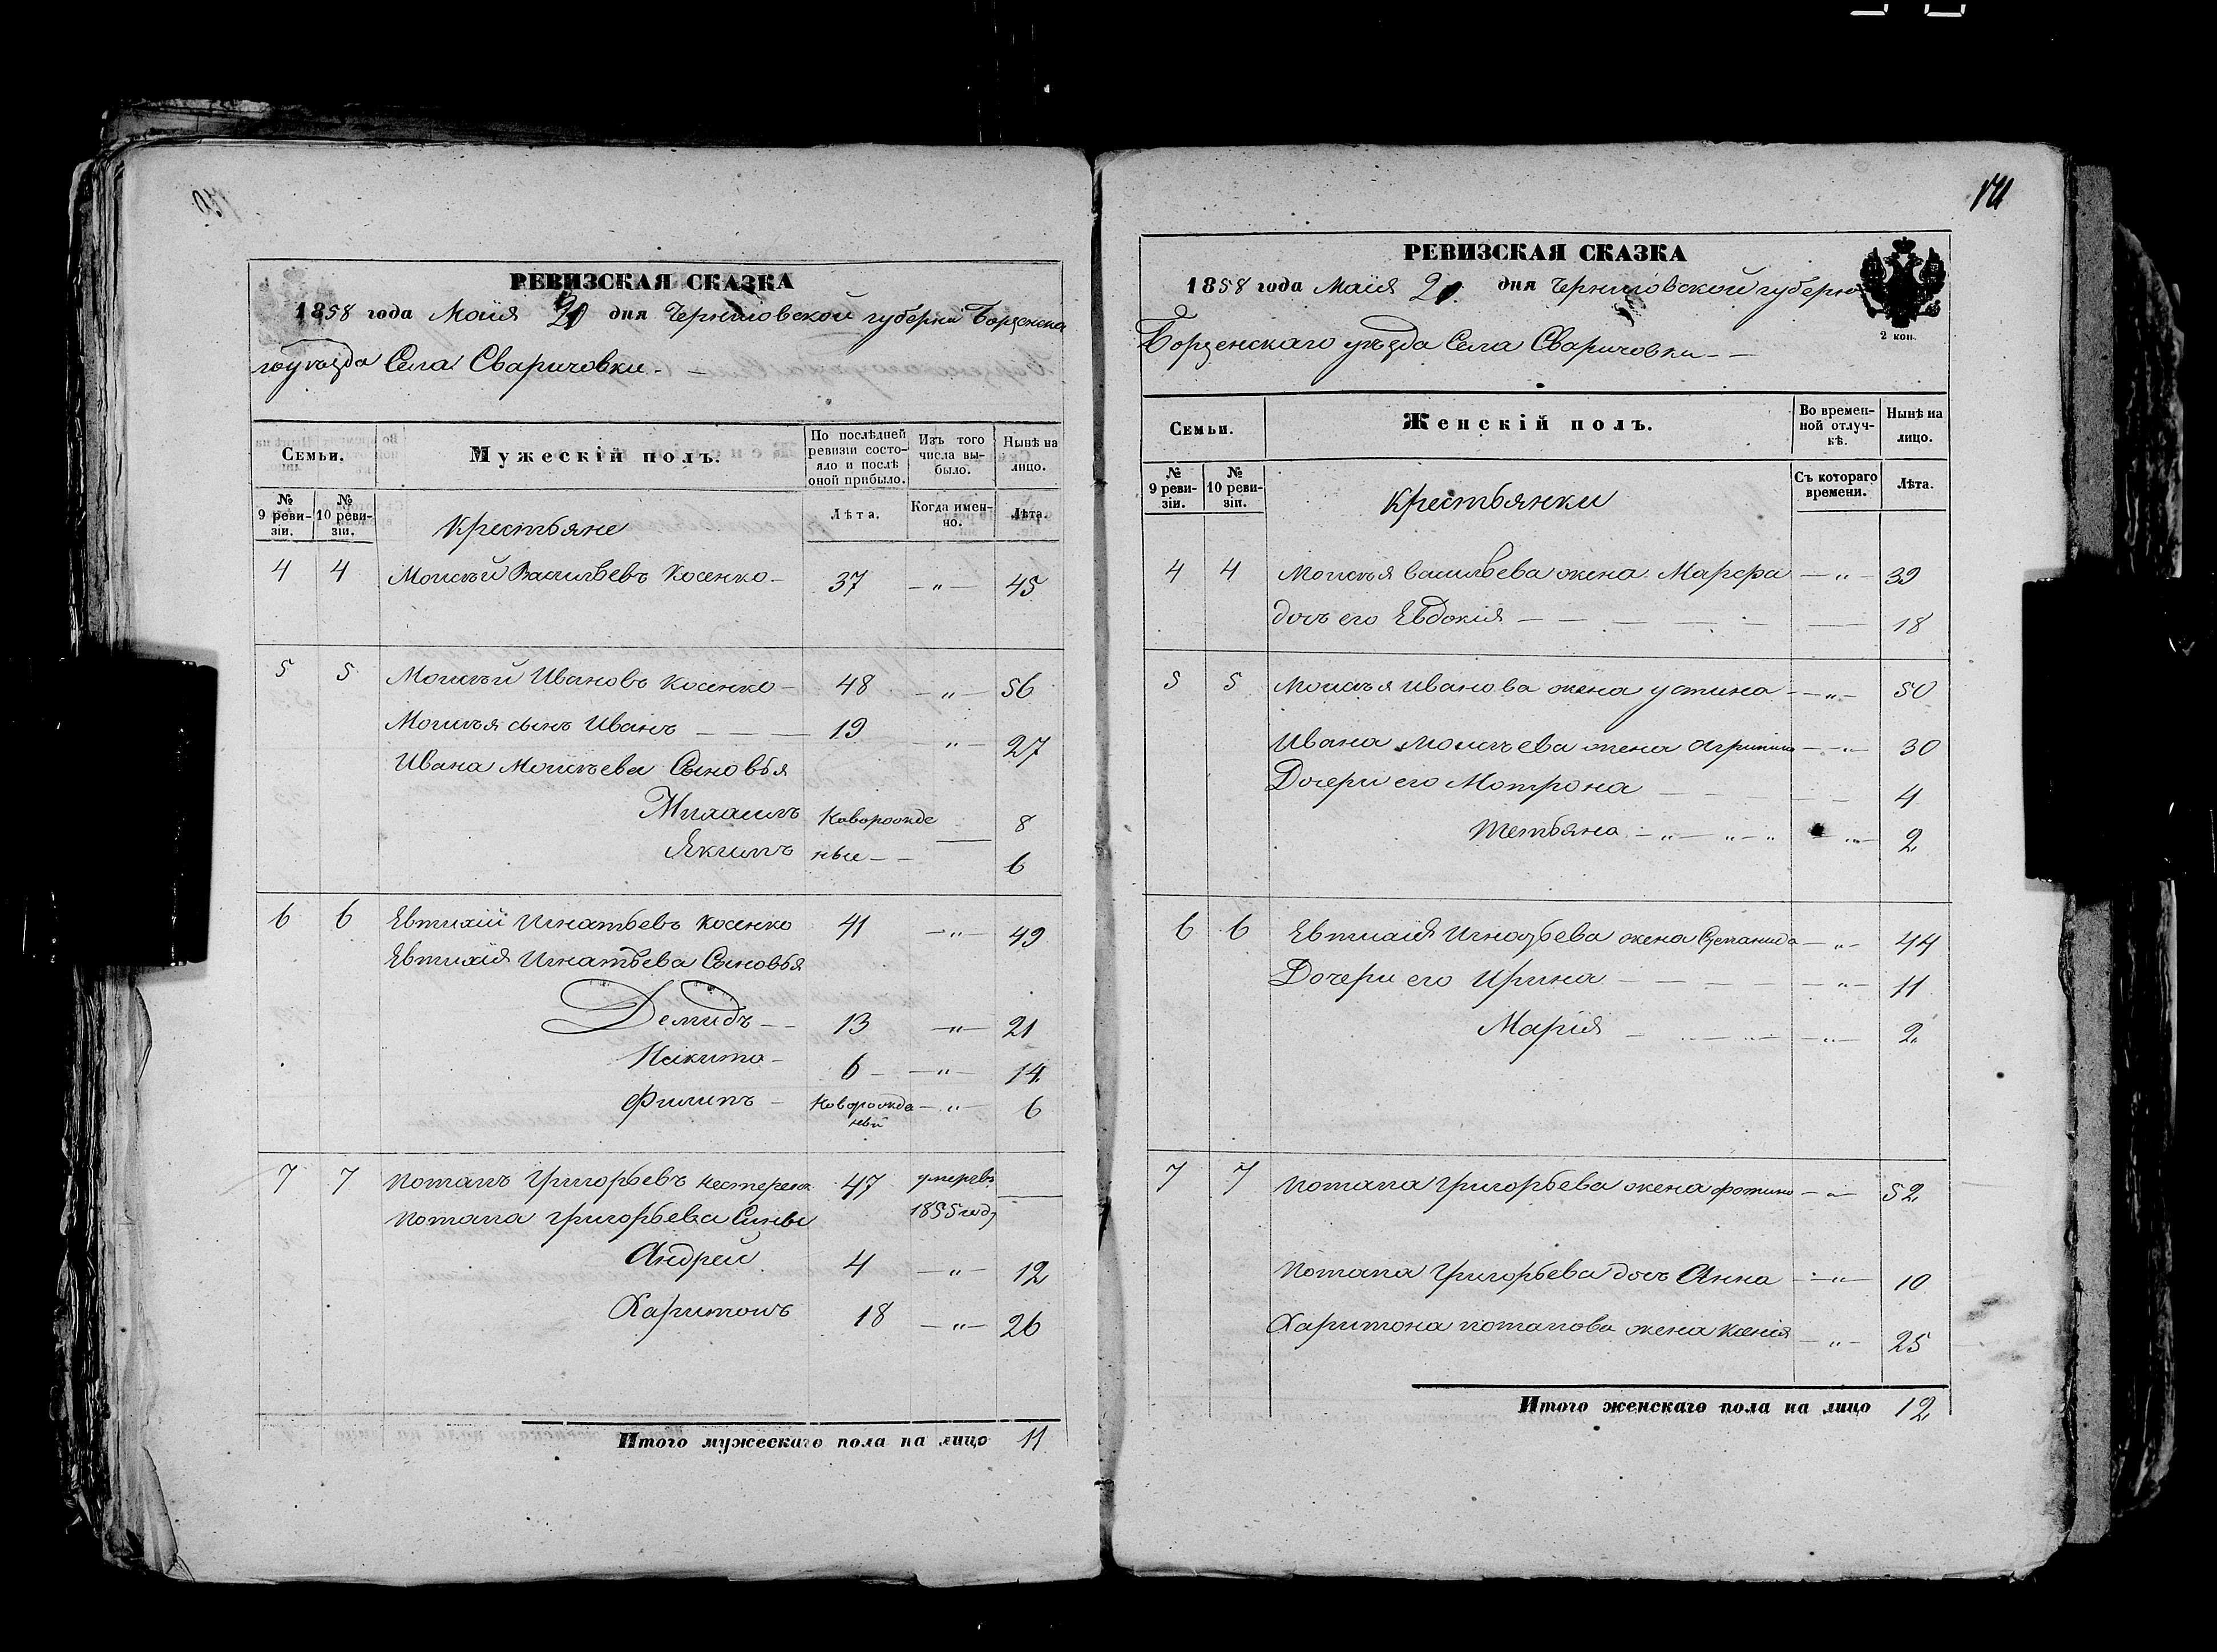 РЕВИЗСКАЯ СКАЗКА
1858 года Маія 20 дня Черниговской губерни Борзенска
гоуѣзда Села Сваричовки.
Семьи.
Мужескій полъ.
По послѣдней ревизіи состояло и послѣ оной прибыло.
Изъ того числа выбыло.
Нынѣ на лицо.
№ 9 ревизіи.
№ 10 ревизіи.
Крестьяне
Лѣта.
Когда именно.
Лѣта.
4 4 Моисѣй Васильевъ Косенко - 37 - " - 45
5 5 Моисѣй Ивановъ Косенко - 48 - " - 56
Моисѣя сынъ Иванъ - - - 19 - " - 27
Ивана Моисѣева Сыновья
Михаилъ Новорожде 8
Якимъ ные - - 6
6 6 Евтихій Игнатьевъ Косенко 41 - " - 49
Евтихія Игнатьева Сыновья
Демидъ - - 13 - " - 21
Никита - 6 - - " - 14
Филипъ - Новорожде - " - 6
ный
7 7 Потапъ Григорьевъ Нестеренк 47 умеръ
Потапа Григорьева Сины 1855 году
Андрей 4 - " - 12
Харитонъ 18 - " - 26
Итого мужескаго пола на лицо 11
171
РЕВИЗСКАЯ СКАЗКА
1858 года Маія 20 дня Черниговской губерни
2 коп.
Борзенскаго уѣзда Села Сваричовки - -
Семьи.
Женскій полъ.
Во временной отлучкѣ.
Нынѣ на лицо.
№ 9 ревизіи.
№ 10 ревизіи.
Крестьянки
Съ котораго времени.
Лѣта.
4 4 Моисѣя Васильева жена Марфа - " - 39
дочь его Евдокія - - - - - 18
5 5 Моисѣя Иванова жена Устина - " - 50
Ивана Моисѣева жена Агрипина - " - 30
Дочери его Мотрона - - - - 4
Тетьяна - " - " - " - " - 2
6 6 Евтихія Игнатьева жена Степанида - " - 44
Дочери его Ирина - - - - - " - 11
Марія - " - " - - " - 2
7 7 Потапа Григорьева жена Фотина - " - 52
Потапа Григорьева дочь Анна - " - 10
Харитона Потапова жена Ксенія - " - 25
Итого женскаго пола на лицо 12